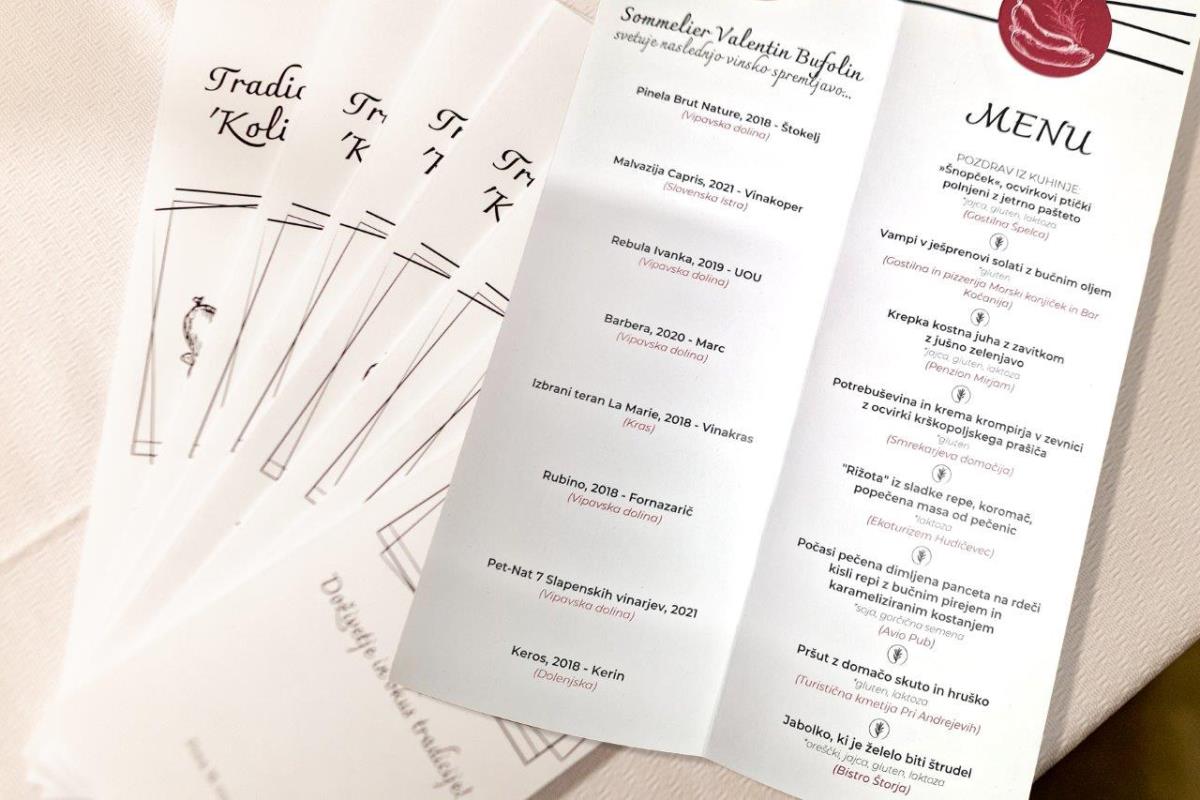 Tradic
'Koli
Tr
'K
Tr
'
Tr
'K
Doživetje in okus tradicije!
Sommelier Valentin Bufolin
svetuje naslednjo vinsko spremljavo...
Pinela Brut Nature, 2018 - Štokelj
(Vipavska dolina)
Malvazija Capris, 2021 - Vinakoper
(Slovenska Istra)
Rebula Ivanka, 2019 - UOU
(Vipavska dolina)
Barbera, 2020 - Marc
(Vipavska dolina)
Izbrani teran La Marie, 2018 - Vinakras
(Kras)
Rubino, 2018 - Fornazarič
(Vipavska dolina)
Pet-Nat 7 Slapenskih vinarjev, 2021
(Vipavska dolina)
Keros, 2018 - Kerin
(Dolenjska)
MENU
POZDRAV IZ KUHINJE:
»Šnopček«, ocvirkovi ptički
polnjeni z jetrno pašteto
*jajca, gluten, laktoza
(Gostilna Špelca)
Vampi v ješprenovi solati z bučnim oljem
*gluten
(Gostilna in pizzerija Morski konjiček in Bar
Kočanija)
Krepka kostna juha z zavitkom
z jušno zelenjavo
*jajca, gluten, laktoza
(Penzion Mirjam)
Potrebuševina in krema krompirja v zevnici
z ocvirki krškopoljskega prašiča
*gluten
(Smrekarjeva domačija)
"Rižota" iz sladke repe, koromač,
popečena masa od pečenic
*laktoza
(Ekoturizem Hudičevec)
Počasi pečena dimljena panceta na rdeči
kisli repi z bučnim pirejem in
karameliziranim kostanjem
*soja, gorčična semena
(Avio Pub)
Pršut z domačo skuto in hruško
*gluten, laktoza
(Turistična kmetija Pri Andrejevih)
Jabolko, ki je želelo biti štrudel
*oreščki, jajca, gluten, laktoza
(Bistro Štorja)